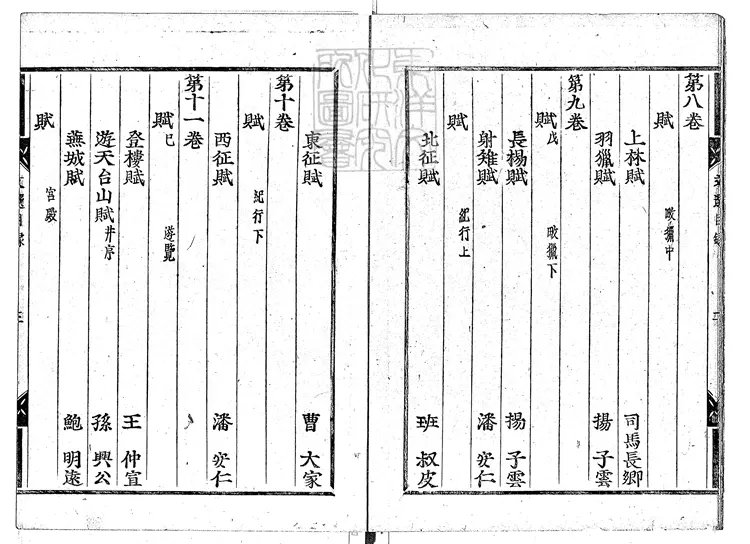 第八卷
賦 畋獵中
上林賦 司馬長卿
羽獵賦 揚子雲
第九卷
賦戊 畋獵下
長楊賦 揚子雲
射雉賦 潘安仁
賦 紀行上
北征賦 班叔皮
東征賦 曹大家
第十卷
賦 紀行下
西征賦 潘安仁
第十一卷
賦己 遊覽
登樓賦 王仲宣
遊天台山賦并序 孫興公
蕪城賦 鮑明遠
賦 宮殿